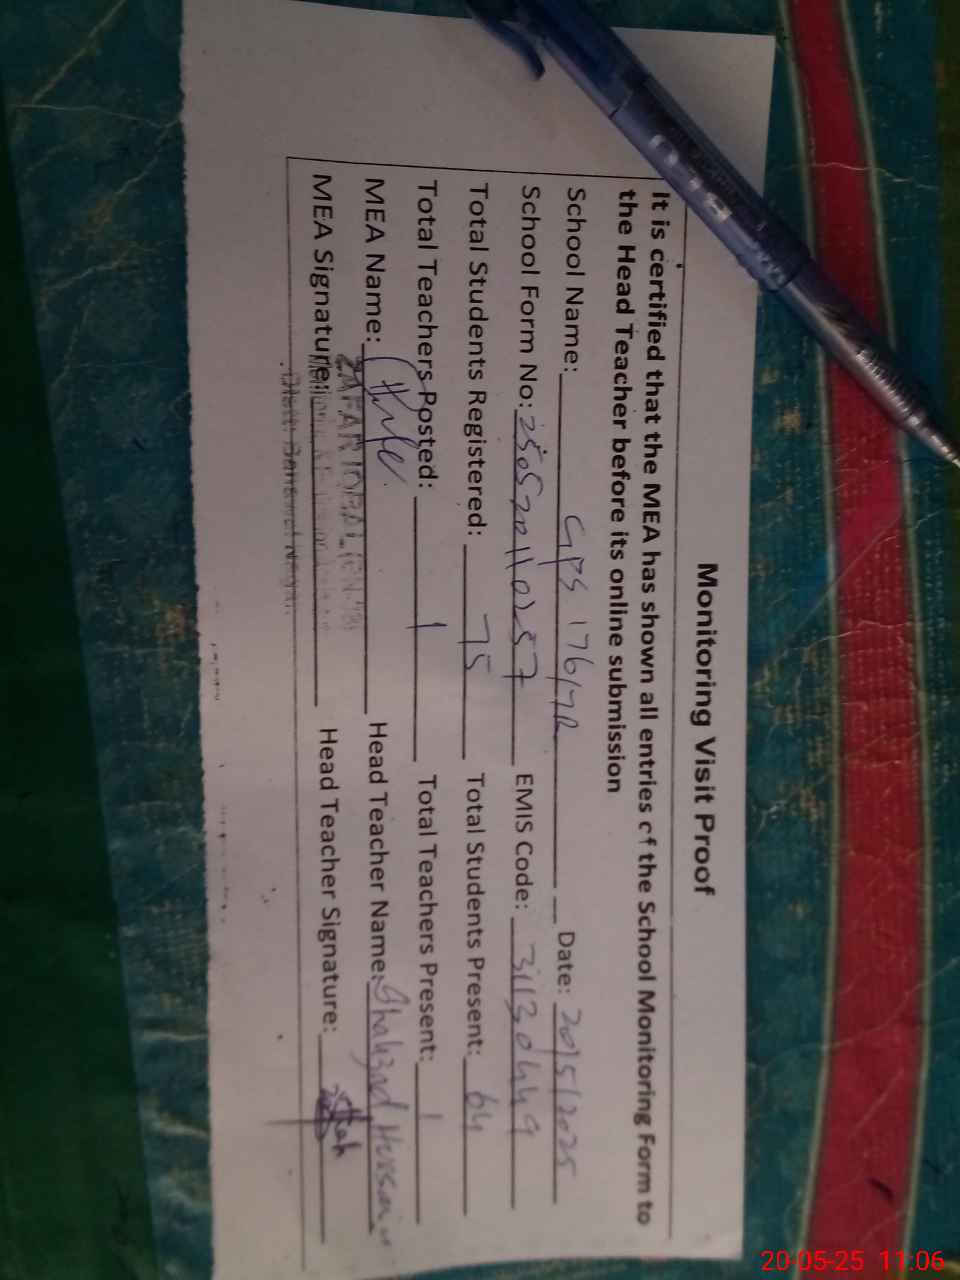 Monitoring Visit Proof
It is certified that the MEA has shown all entries of the School Monitoring Form to
the Head Teacher before its online submission
School Name: GPS 176/7R Date: 20/5/2025
School Form No: EMIS Code: 31130449
Total Students Registered: 75 Total Students Present: 64
Total Teachers Posted: 1 Total Teachers Present: 1
MEA Name: Head Teacher Name: Shahzad Hussain
ZAFAR IQBAL
MEA Signature: Head Teacher Signature:
20-05-25 11:06